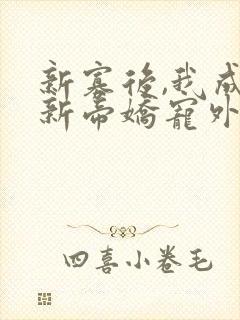 新寡后,我成
新帝娇宠外
四喜小卷毛